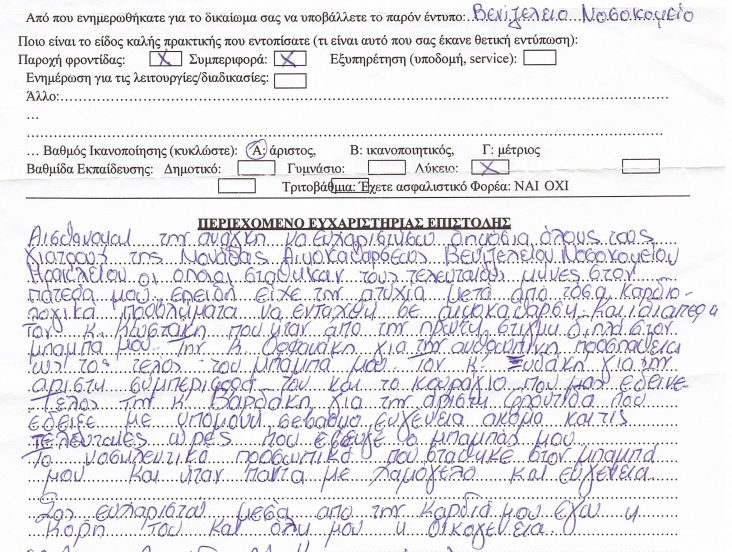 Από που ενημερωθήκατε για το δικαίωμα σας να υποβάλλετε το παρόν έντυπο: Βενιζέλειο Νοσοκομείο
Ποιο είναι το είδος καλής πρακτικής που εντοπίσατε (τι είναι αυτό που σας έκανε θετική εντύπωση):
Παροχή φροντίδας: X Συμπεριφορά: X Εξυπηρέτηση (υποδομή, service):
Ενημέρωση για τις λειτουργίες/διαδικασίες:
Άλλο:
...
... Βαθμός Ικανοποίησης (κυκλώστε): Α: άριστος, Β: ικανοποιητικός, Γ: μέτριος
Βαθμίδα Εκπαίδευσης: Δημοτικό: Γυμνάσιο: Λύκειο: X
Τριτοβάθμια: Έχετε ασφαλιστικό Φορέα: ΝΑΙ ΟΧΙ
ΠΕΡΙΕΧΟΜΕΝΟ ΕΥΧΑΡΙΣΤΗΡΙΑΣ ΕΠΙΣΤΟΛΗΣ
Αισθανομαι την αναγκη να ευχαριστησω δημοσια ολους τους
γιατρους της Μοναδας Αιμοκαθαρσεως Βενιζελειου Νοσοκομειου
Ηρακλειου οι οποιοι σταθηκαν τους τελευταιους μηνες στον
πατερα μου επειδη ειχε την ατυχια μετα απο τοσα καρδιο-
λογικα προβληματα να ενταχθη σε αιμοκαθαρση και ιδιαιτερα
τον κ. Κωστακη που ηταν απο την πρωτη στιγμη διπλα στον
μπαμπα μου. Την κ. Ορφανακη για την ανθρωπινη προσπαθεια
ως το τελος του μπαμπα μου. Τον κ. για την
αριστη συμπεριφορα του και το κουραγιο που μας εδεινε
Τελος την κ. Βαρδακη για την αριστη φροντιδα που
εδειξε με υπομονη σεβασμο ευγενεια ακομα και τις
τελευταιες ωρες που εφευγε ο μπαμπας μου
Το νοσηλευτικο προσωπικο που σταθηκε στον μπαμπα
μου και ηταν παντα με χαμογελο και ευγενεια
Σας ευχαριστω μεσα απο την καρδια μου εγω η
κορη του και ολη μου η οικογενεια